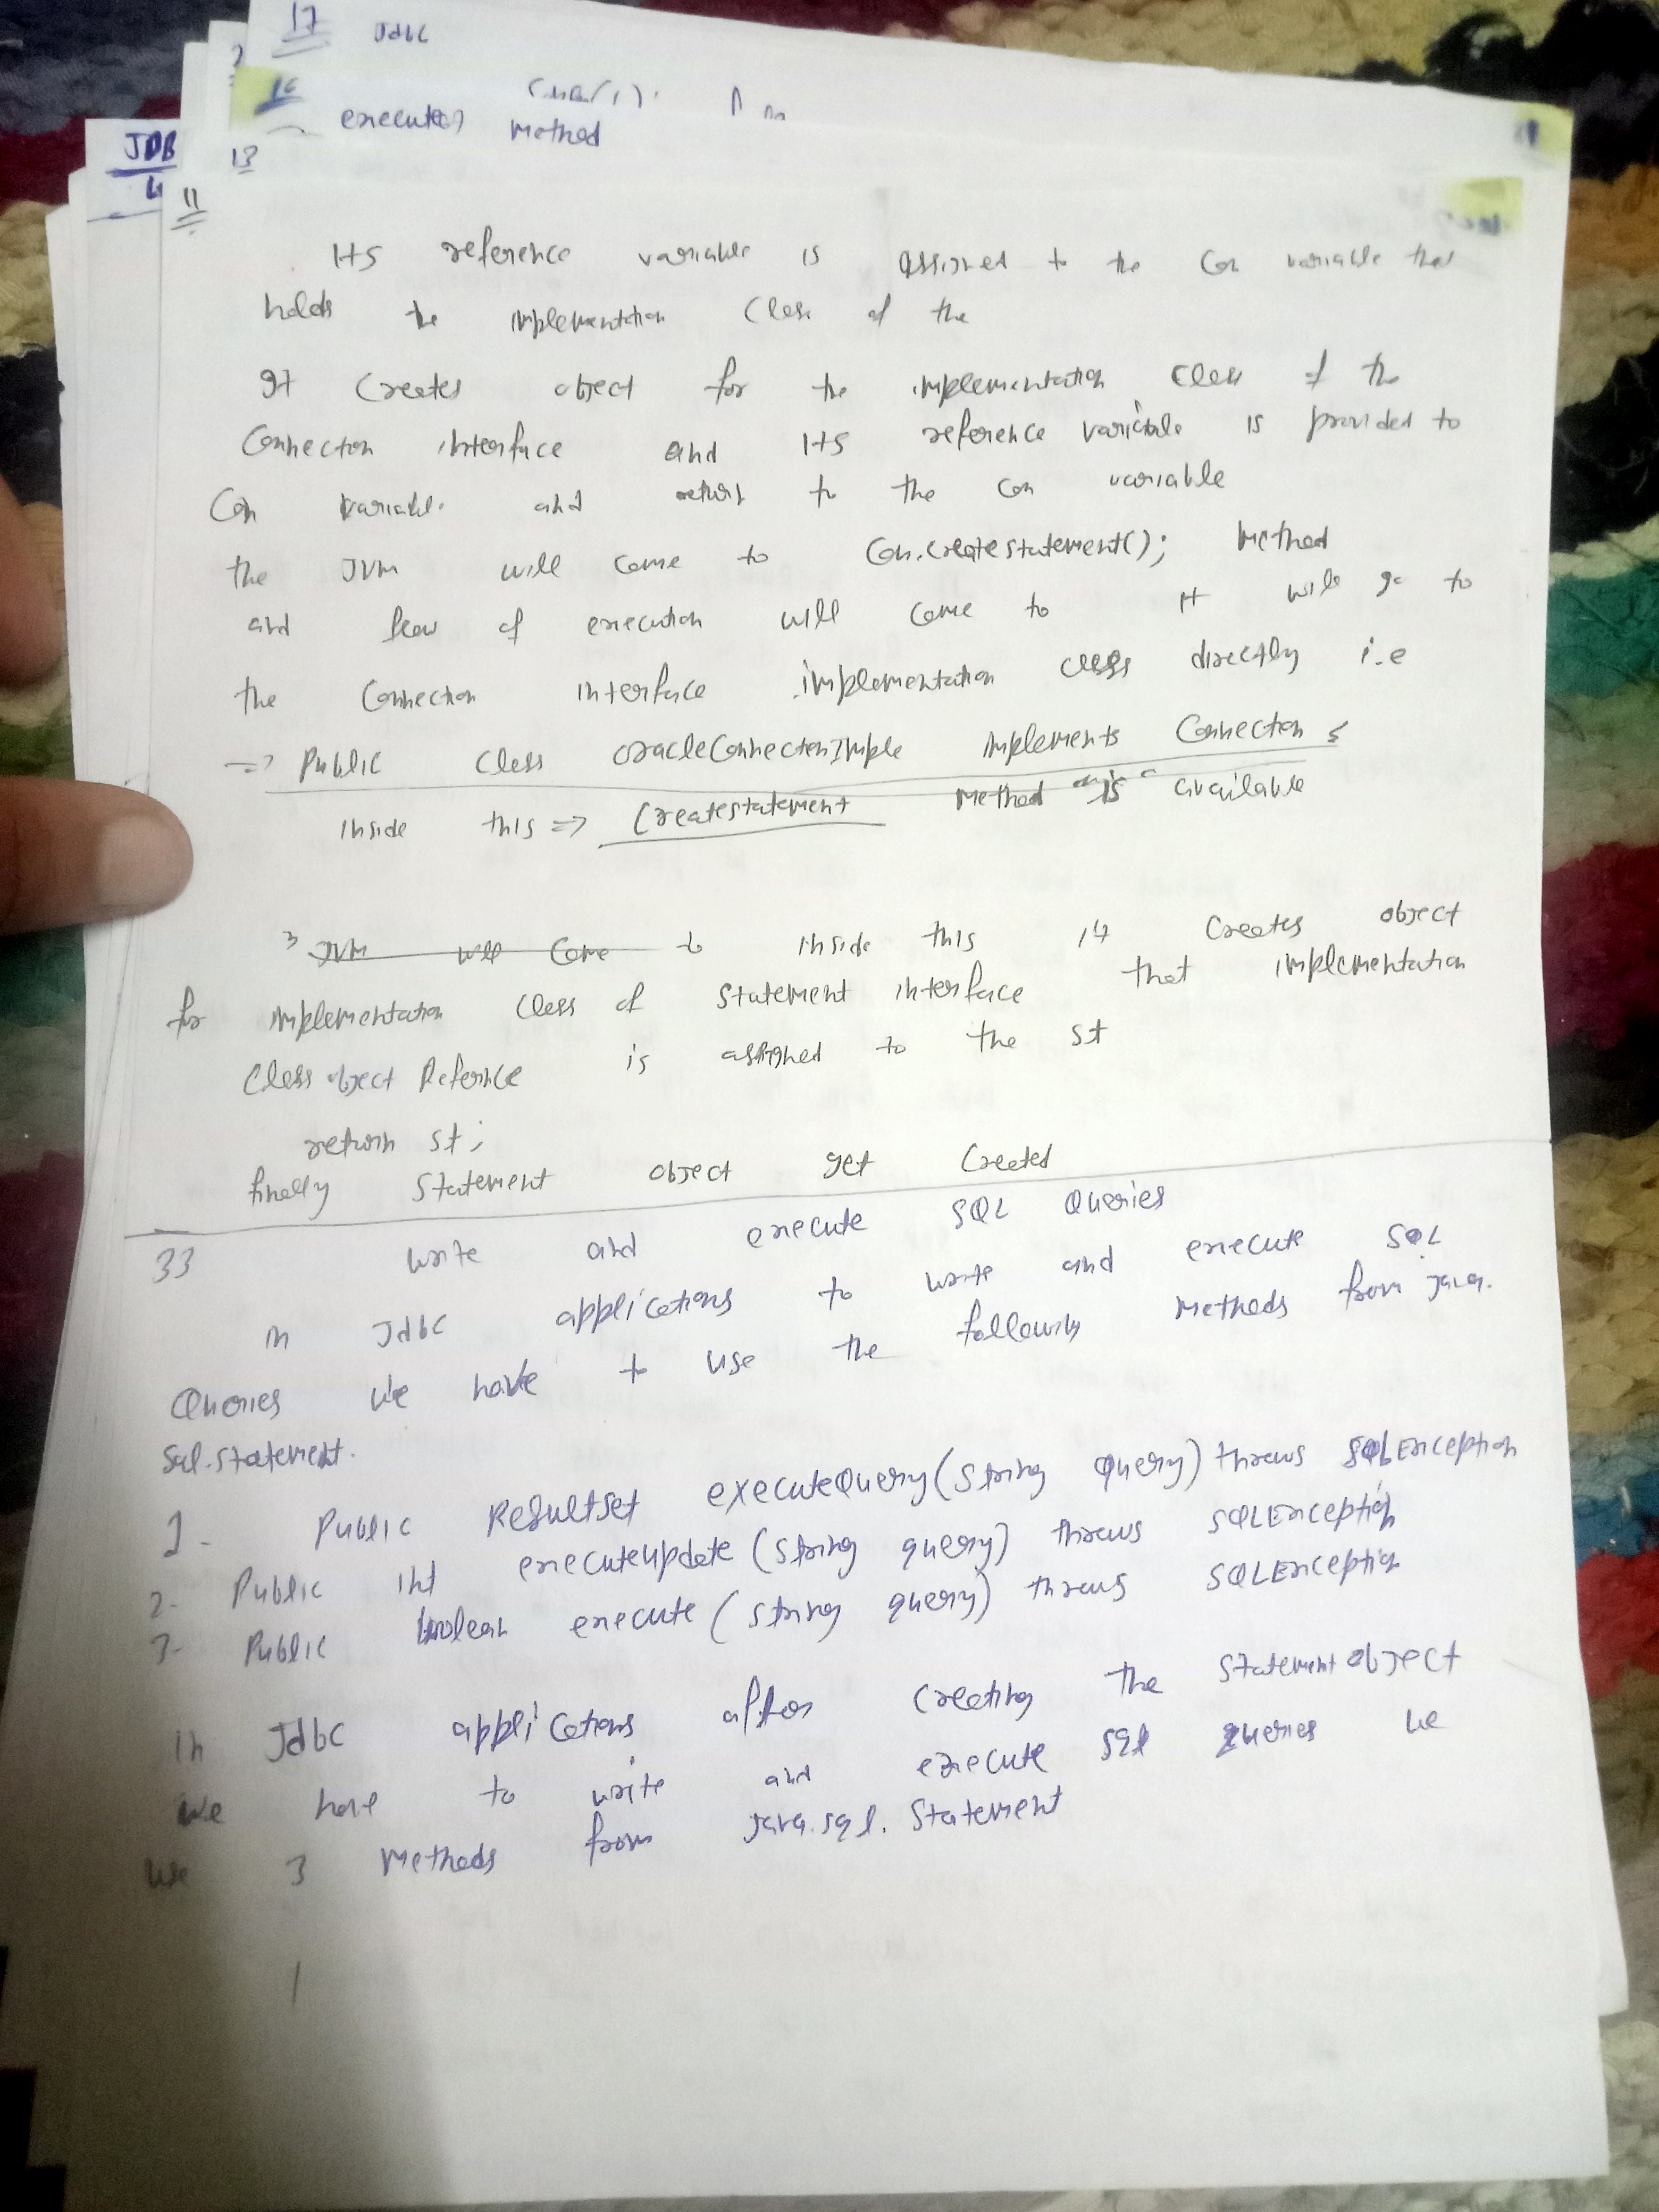 17 Jdbc
16
executes method
13
JDB
11
its reference variable is assigned to the Con variable that
holds the implementation class of the
It creates object for the implementation class of the
Connection interface and its reference variable is provided to
Con variable. and return to the Con variable
the JVM will come to Con.createstatement(); method
and flow of execution will come to it will go to
the Connection interface implementation class directly i.e
=> Public class oracleConnectionImple implements Connection {
Inside this => Createstatement method is available
} JVM will Come to inside this it creates object
for implementation class of Statement interface that implementation
Class object reference is assigned to the st
return st;
finally Statement object get created
33 write and execute SQL Queries
in Jdbc applications to write and execute SQL
Queries we have to use the following methods from java.
Sql.statement.
1- Public Resultset executeQuery(String Query) throws SQLException
2- Public int executeupdate (String query) throws SQLException
3- Public boolean execute (String query) throws SQLException
in Jdbc applications after creating the Statement object
we have to write and execute sql queries we
we 3 methods from java.sql.Statement